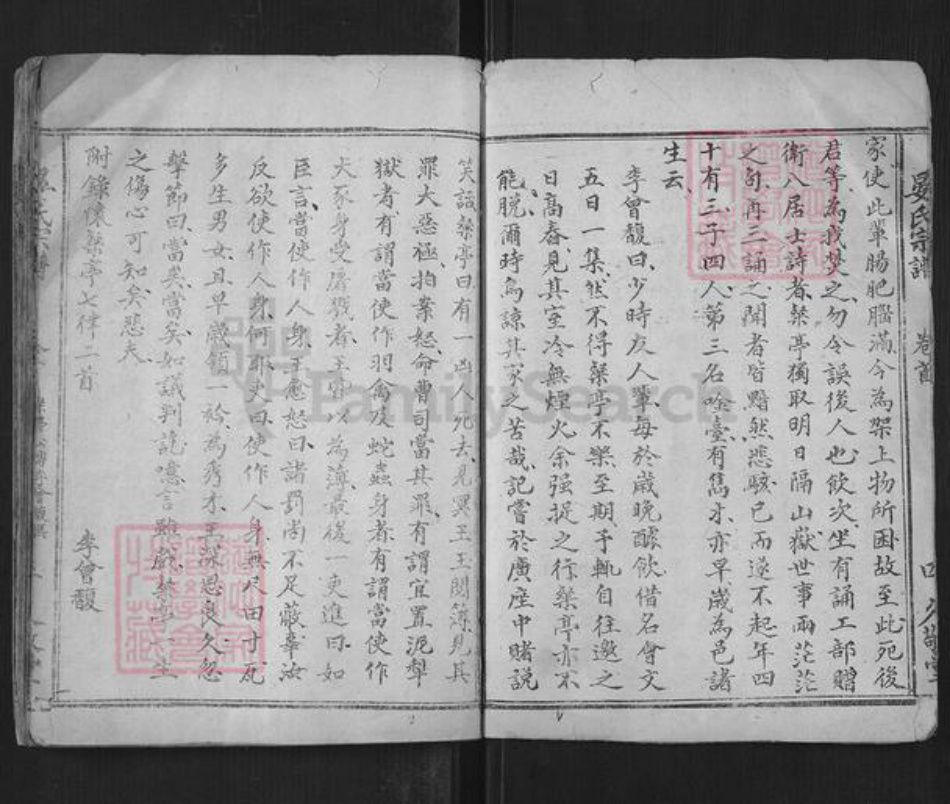 晏氏宗譜 卷首
家使此輩腸肥腦滿今為架上物所困故至此死後
君等為我焚之勿令誤後人也飲次坐有誦工部贈
衛八居士詩者槃亭獨取明日隔山嶽世事兩茫茫
之句再三誦之聞者皆黯然悲駭已而遂不起年四
十有三子四人第三名唫臺有雋才亦早歲為邑諸
生云
李會馥曰少時友人輩每於歲晚醵飲借名會文
五日一集然不得槃亭不樂至期予輒自往邀之
日高舂見其室冷無煙火余强捉之行槃亭亦不
能脫爾時烏諒其家之苦哉記嘗於廣座中賭說
笑話槃亭曰有一凶人死去見冥王王閱簿見其
罪大惡極拍案怒命曹司當其罪有謂宜置泥犂
獄者有謂當使作羽禽及蛇蟲身者有謂當使作
犬豕身受屠戮者王胥以為薄最後一吏進曰如
臣言當使作人身王愈怒曰諸罰尚不足蔽辜汝
反欲使作人身何耶吏曰使作人身無尺田寸瓦
多生男女且早歲領一衿為秀才王深思良久忽
擊節曰當矣當矣如議判訖噫言雖戲槃亭一生
之傷心可知矣悲夫
附錄懷槃亭七律二首
李會馥
FamilySearch